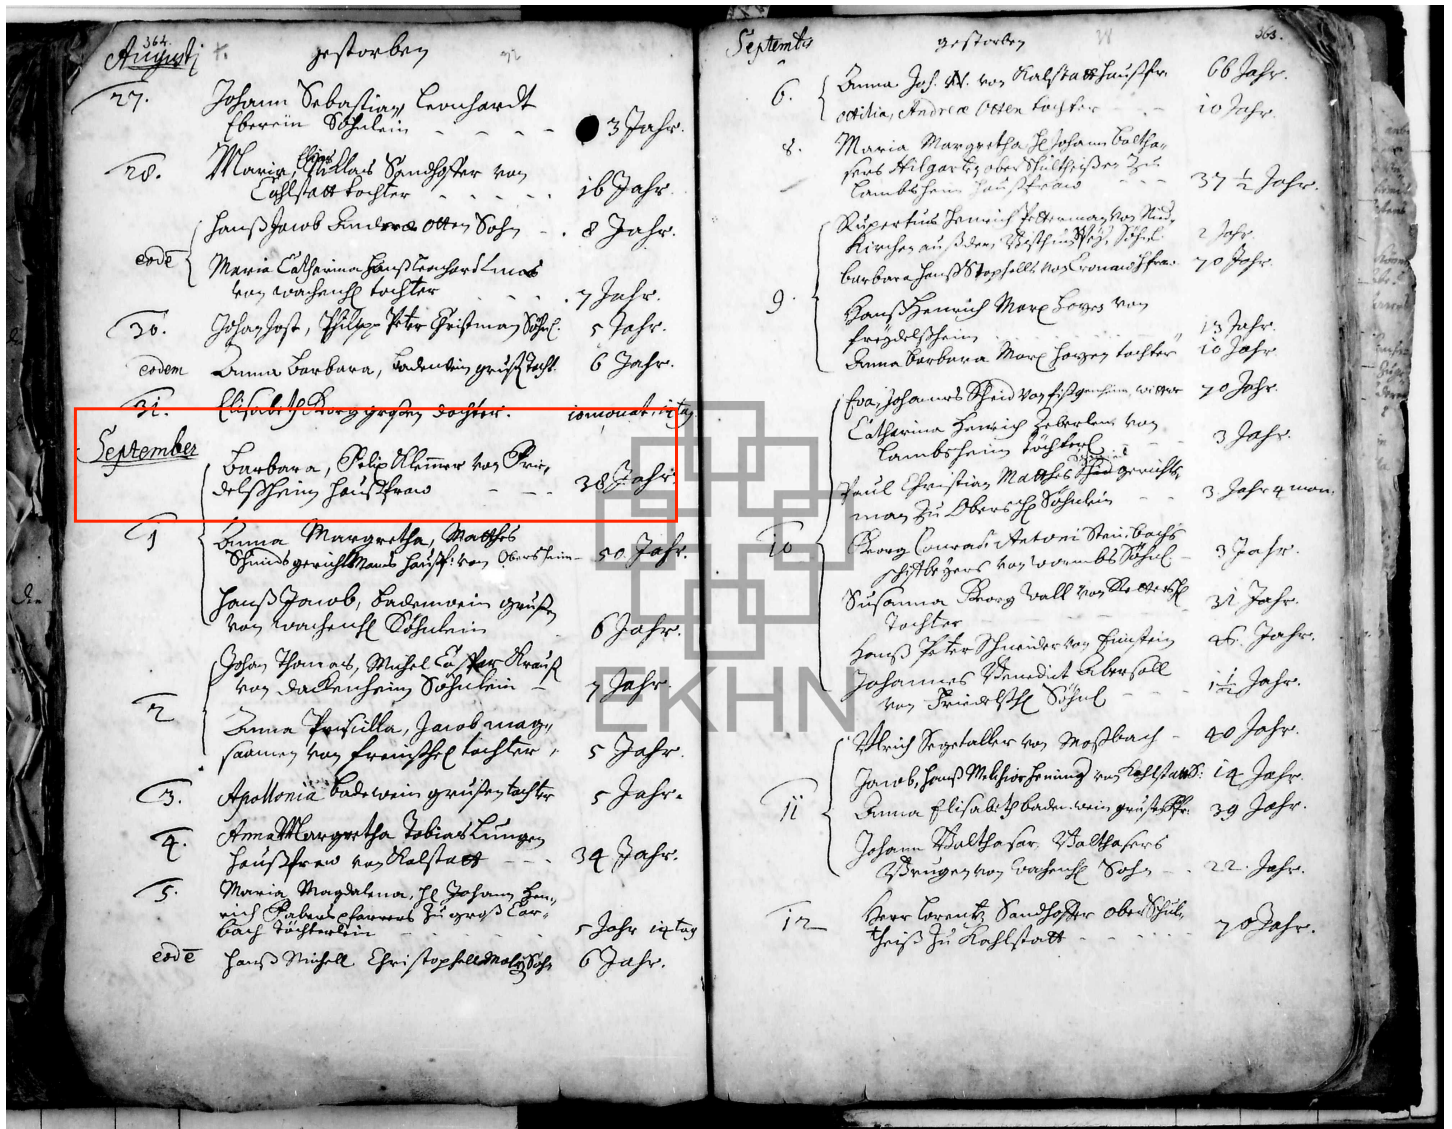 364.
Augusti
gestorben
27.
Johann Sebastian, Leonhardt
Eberein Söhnlein - - - - 3 Jahr.
28.
Maria, Niclas Sandhoffer von
Callstatt tochter - - - - 16 Jahr.
Hanß Jacob Andreae Otten Sohn - . 8 Jahr.
eodē
Maria Catharina Hanß Leonhardt
von wachenh. tochter 7 Jahr.
30.
Johan Jost, Philipp Peter Christman Söhnl. 5 Jahr.
eodem
Anna Barbara, Badenwein grußen Tocht. 6 Jahr.
31.
Elisabeth Georg großen dochter. 10 monat, 14 tag
September
Barbara, Felix Klemmer von Frie-
delßheim Haußfraw - - - 38 Jahr.
1
Anna Margretha, Matthes
Schmids gerichtsMans Haußf: von Obersheim - 50 Jahr.
Hanß Jacob, Badenwein grußen
von wachenh. Söhnlein 6 Jahr.
2
Johan Thomas, Michel Caspar Krauß
von Dackenheim Söhnlein - 7 Jahr.
Anna Priscilla, Jacob mag-
saamen von tochter 5 Jahr.
3.
Apollonia Badewein grußen tochter 5 Jahr.
4.
Anna Margretha Tobias Lungen
Haußfraw von Kalstatt - - - 34 Jahr.
5.
Maria Magdalena, H. Johann Hen-
rich Fabers pfarrers zu groß Car-
bach töchterlein 5 Jahr 14 tag
eodē
Hanß Michell Christophell Sohn 6 Jahr.
Septembr
gestorben
363.
6.
Anna Joh. N. von Kalstatt Haußfr. 66 Jahr.
Ottilia, Andreæ Otten tochter - - - 10 Jahr.
8.
Maria Margretha H. Johann Baltha-
sers Hilgarts ober Schultheißen zu
Lambsheim Haußfraw - - - 37 1/2 Jahr.
Rupertus Henrich Petterman von
Kirchen auß dem Söhnl. 2 Jahr.
Barbara Hanß Stophell 70 Jahr.
9.
Hanß Henrich Marx von
freydelßheim 13 Jahr.
Anna Barbara Marx tochter 10 Jahr.
Eva, Johannes Scheid von Eißgenheim, wittwe 70 Jahr.
Catharina Henrich Heberlens von
Lambsheim töchterl. - - 3 Jahr.
Paul Christian Matthes gerichts-
man zu Obersh. Söhnlein - - 3 Jahr 4 mon.
10
Georg Conrad, Antoni Steinbachs
von wormbs Söhnl. - 3 Jahr.
Susanna Georg Wall von
Tochter 31 Jahr.
Hanß Peter Schneider von Einstein 46. Jahr.
Johannes Benedict Ebersoll
von Friedelsh. Söhnl. - - 1 1/2 Jahr.
Ulrich Segetaller von Moßbach - 40 Jahr.
Jacob, Hanß Melchior Hening von Kahlstatt S: 14 Jahr.
11
Anna Elisabeth Baden-wein grußen fr. 39 Jahr.
Johann Balthasar, Balthasers
von wachenh. Sohn - - 22. Jahr.
12
Herr Lorentz Sandhoffer ober Schul-
theiß zu Kahlstatt - - - - 70 Jahr.
EKHN